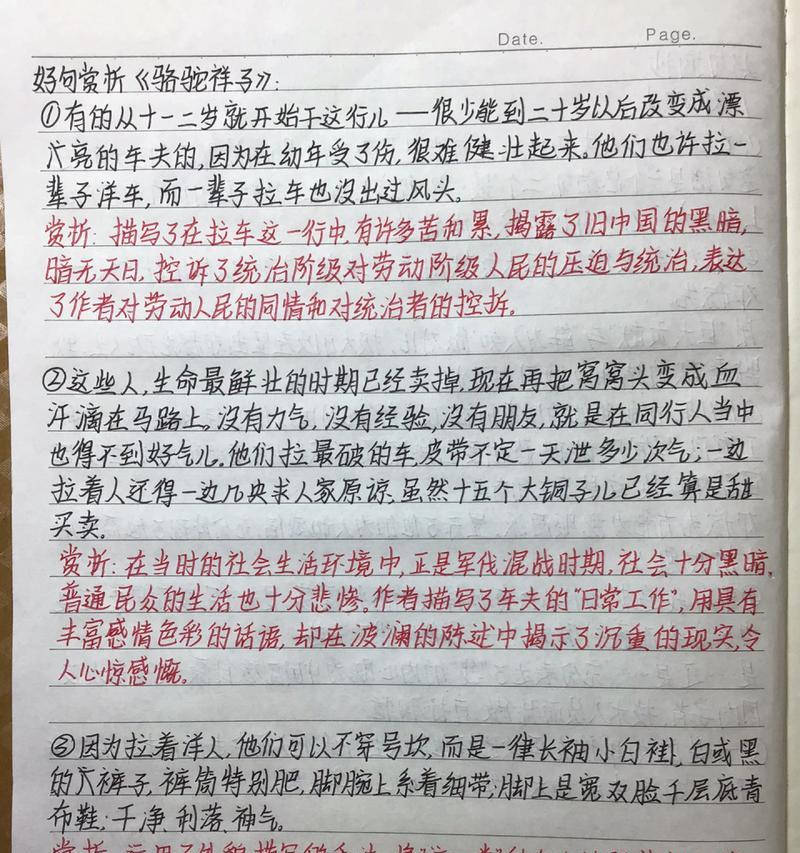 Date. Page.
好句赏析《骆驼祥子》:
①有的从十一二岁就开始干这行儿——很少能到二十岁以后改变成漂
亮的车夫的,因为在幼年受了伤,狠难健壮起来。他们也许拉一
辈子洋车,而一辈子拉车也没出过风头。
赏析:描写了在拉车这一行中,有许多苦和累,揭露了旧中国的黑暗,
暗无天日,控诉了统治阶级对劳动阶级人民的压迫与统治,表达
了作者对劳动人民的同情和对统治者的控拆。
②这些人,生命最鲜壮的时期已经卖掉,现在再把窝窝头变成血
汗滴在马路上。没有力气,没有经验,没有朋友,就是在同行人当中
也得不到好气儿。他们拉最破的车,皮带不定一天泄多少次气;一边
拉着人还得一边儿央求人家原谅,虽然十五个大铜子儿已经算是甜
买卖。
赏析:在当时的社会生活环境中,正是军伐混战时期,社会十分黑暗,
普通民众的生活也十分悲惨。作者描写了车夫的"日常工作",用具有
丰富感情色彩的话语,却在波澜的陈述中揭示了沉重的现实,令
人心惊感慨。
③因为拉着洋人,他们可以不穿号坎,而是一律长袖小白褂,白或黑
的裤子,裤筒特别肥,脚腕上系着细带;脚上是宽双脸千层底青
布鞋;干净,利落,神气。